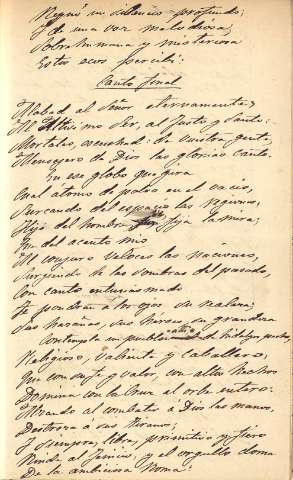 Siguió un silencio profundo;
Y de una voz melodiosa,
Sobrehumana y misteriosa
Estos ecos percibí:
Canto final
Alabad al Señor eternamente,
Al Altísimo Ser, al Justo y Santo:
Mortales, escuchad: de vuestra gente,
Mensajero de Dios las glorias canto.
En ese globo que gira
Cual átomo de polvo en el vacío,
Surcando del espacio las regiones,
Hijo del hombre fija la mira;
Que del acento mio
Al conjuro veloces las naciones,
Surgiendo de las sombras del pasado,
Con canto entusiasmado
Te pondrán a los ojos su realeza:
Sus hazañas, sus héroes, su grandeza
Contempla un pueblo altivo de hidalgo pecho,
Religioso, valiente y caballero,
Que con su fe y valor, con altos hechos
Domina con la Cruz el orbe entero:
Alzando al combate a Dios las manos,
Destroza a sus tiranos;
Y siempre libre, primitivo y fiero
Rinde al fenicio, y el orgullo doma
De la ambiciosa Roma: